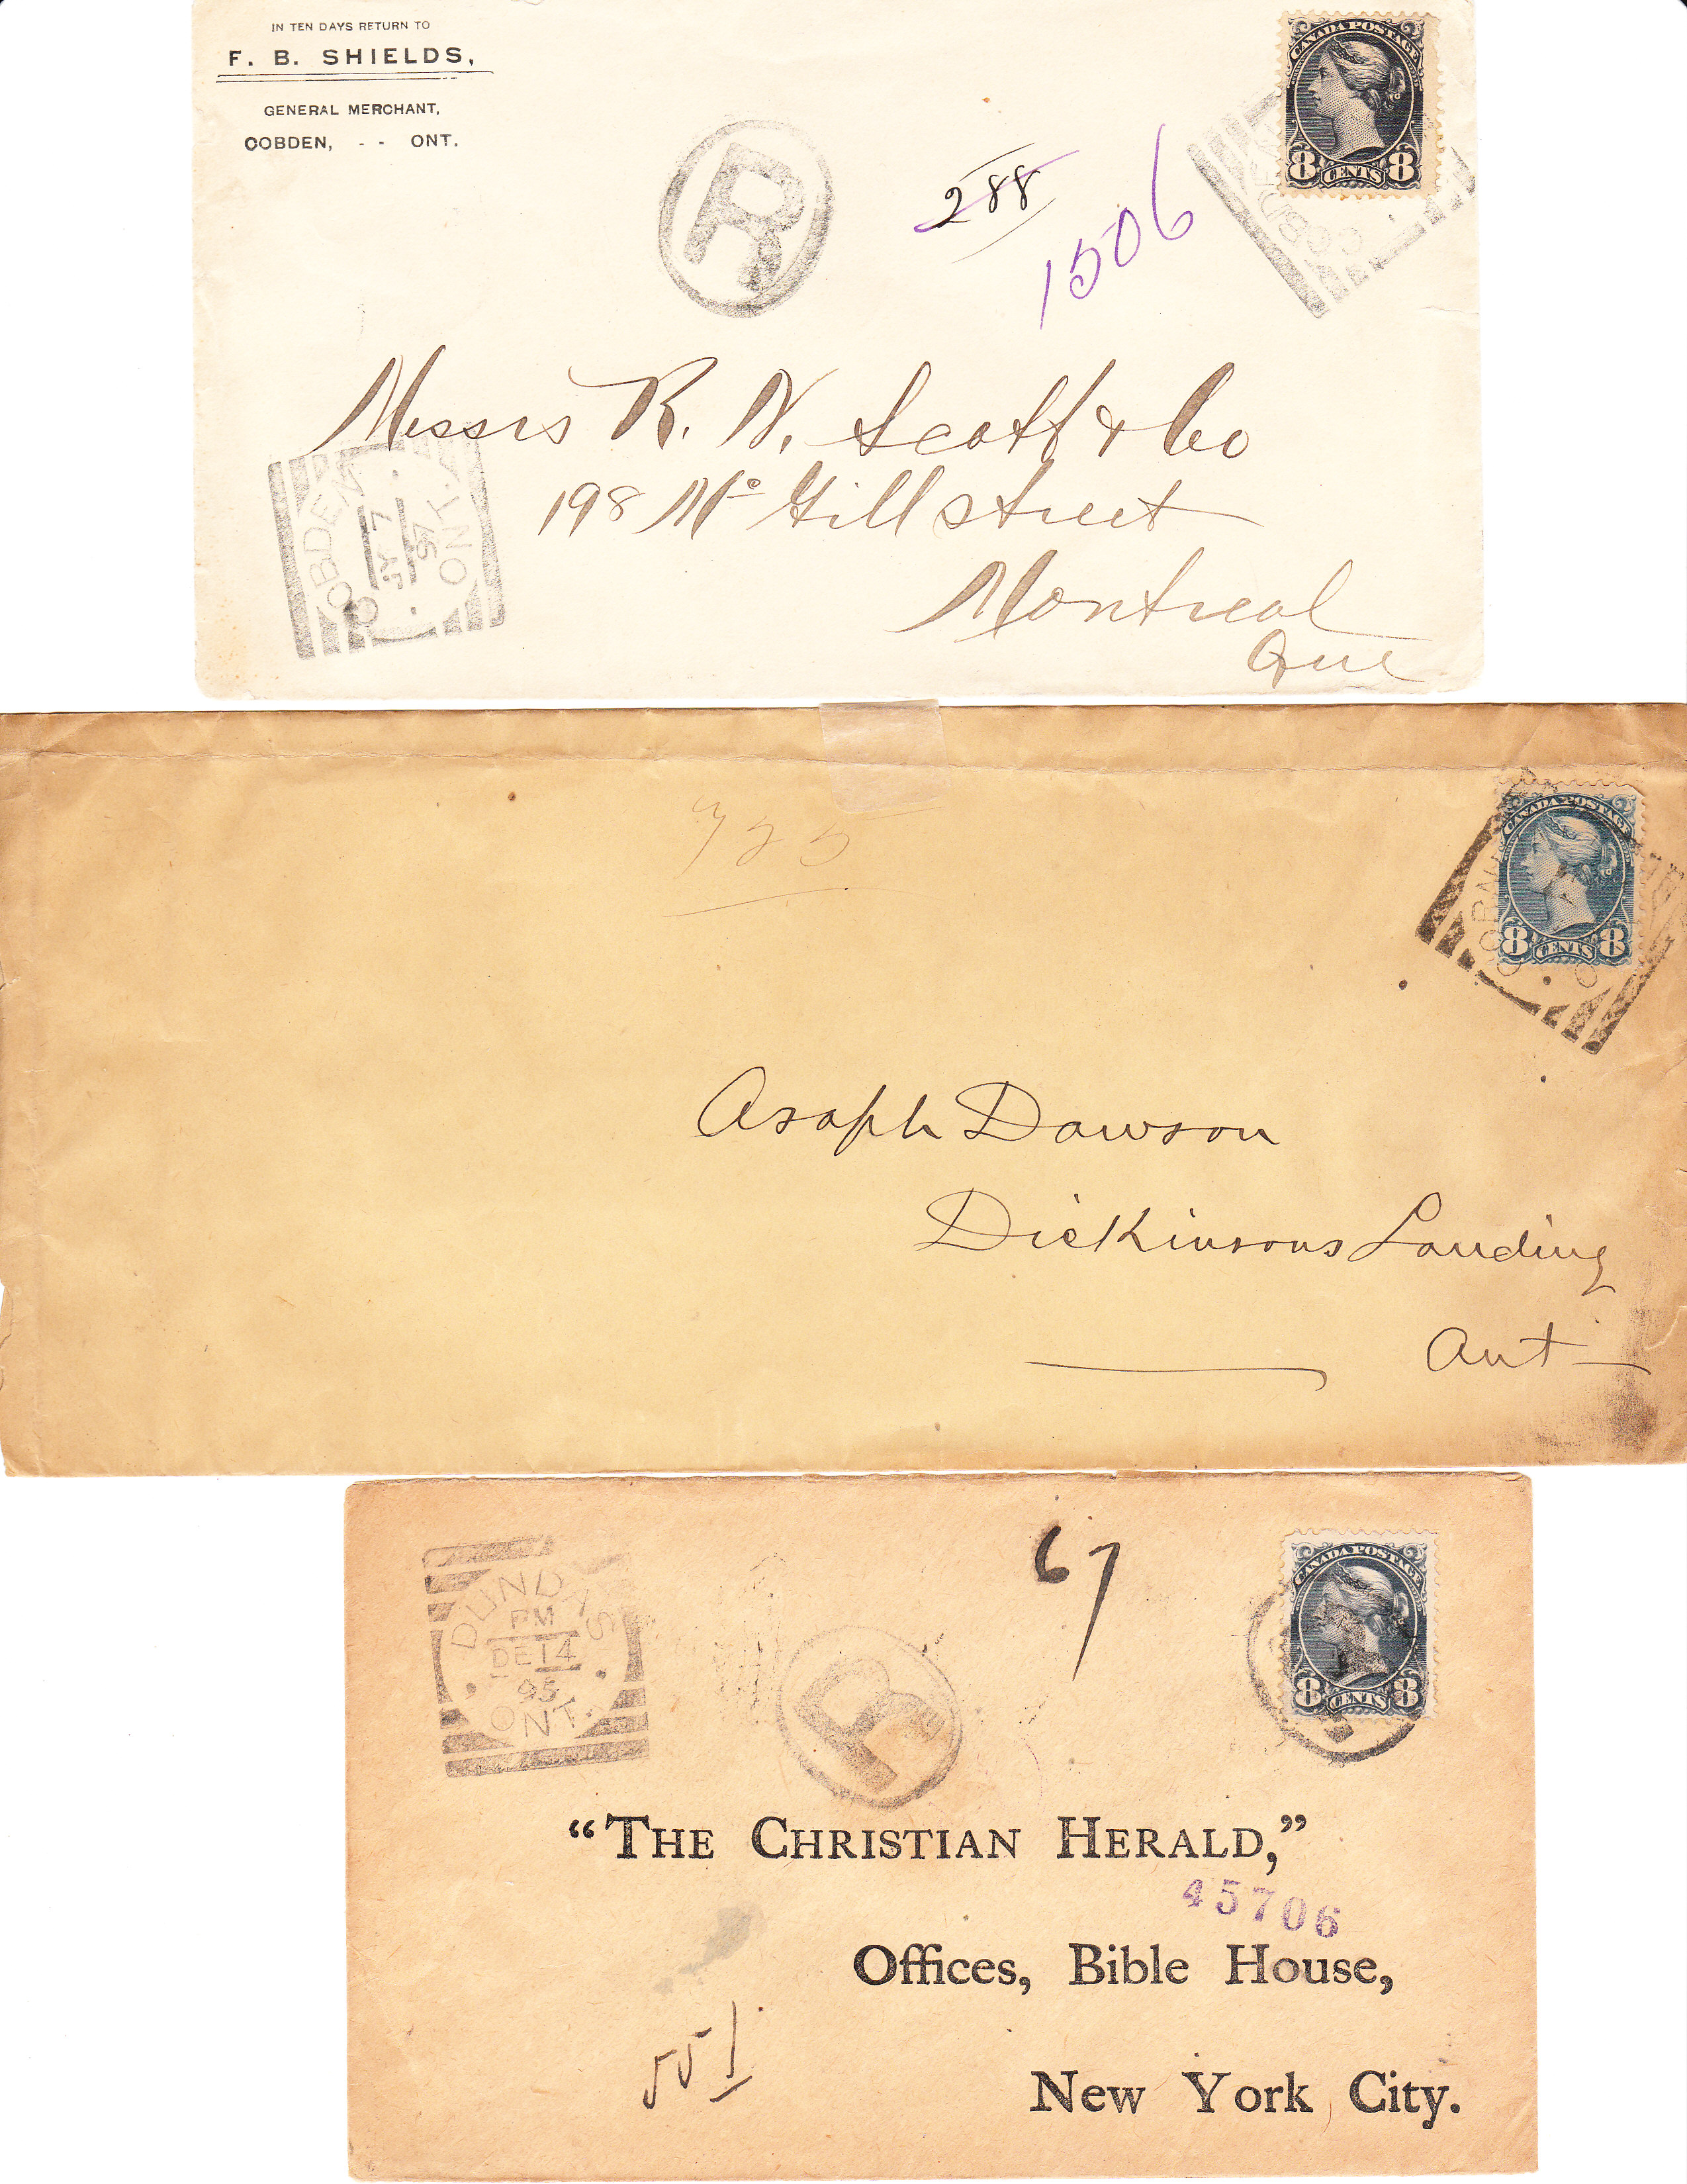 IN TEN DAYS RETURN TO
F. B. SHIELDS,
GENERAL MERCHANT,
COBDEN, - - ONT.
CANADA POSTAGE
8 CENTS 8
R
288
1506
COBDEN
Messrs R. N. Scott & Co
198 Mc Gill street
Montreal
Que
COBDEN
JY 7
97
ONT.
725
CANADA POSTAGE
8 CENTS 8
Asaph Dawson
Dickinsons Landing
Ont
DUNDAS
PM
DE 14
95
ONT.
R
67
CANADA POSTAGE
8 CENTS 8
"THE CHRISTIAN HERALD,"
45706
Offices, Bible House,
551
New York City.